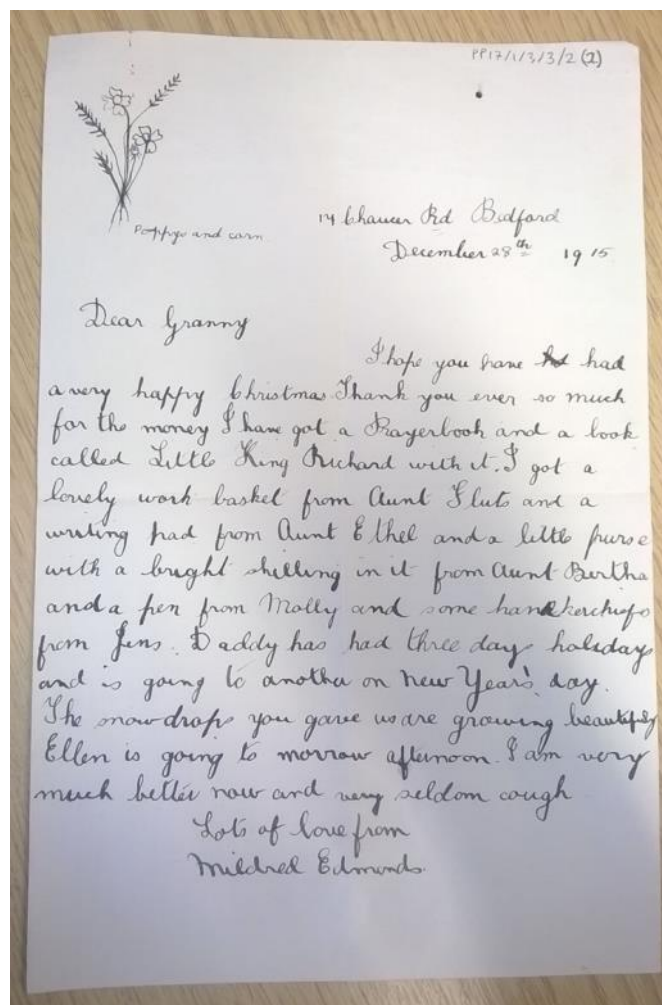 PP17/1/3/3/2 (2)
Poppys and corn
14 Chaucer Rd Bedford
December 28th 1915
Dear Granny
I hope you have had
a very happy Christmas. Thank you ever so much
for the money I have got a Prayerbook and a book
called Little King Richard with it. I got a
lovely work basket from Aunt and a
writing pad from Aunt Ethel and a little purse
with a bright shilling in it from Aunt Bertha
and a pen from Molly and some handkerchiefs
from Jens. Daddy has had three days holidays
and is going to another on New Year's day.
The snowdrops you gave us are growing beautifully
Ellen is going to morrow afternoon. I am very
much better now and very seldom cough
Lots of love from
Mildred Edmunds.